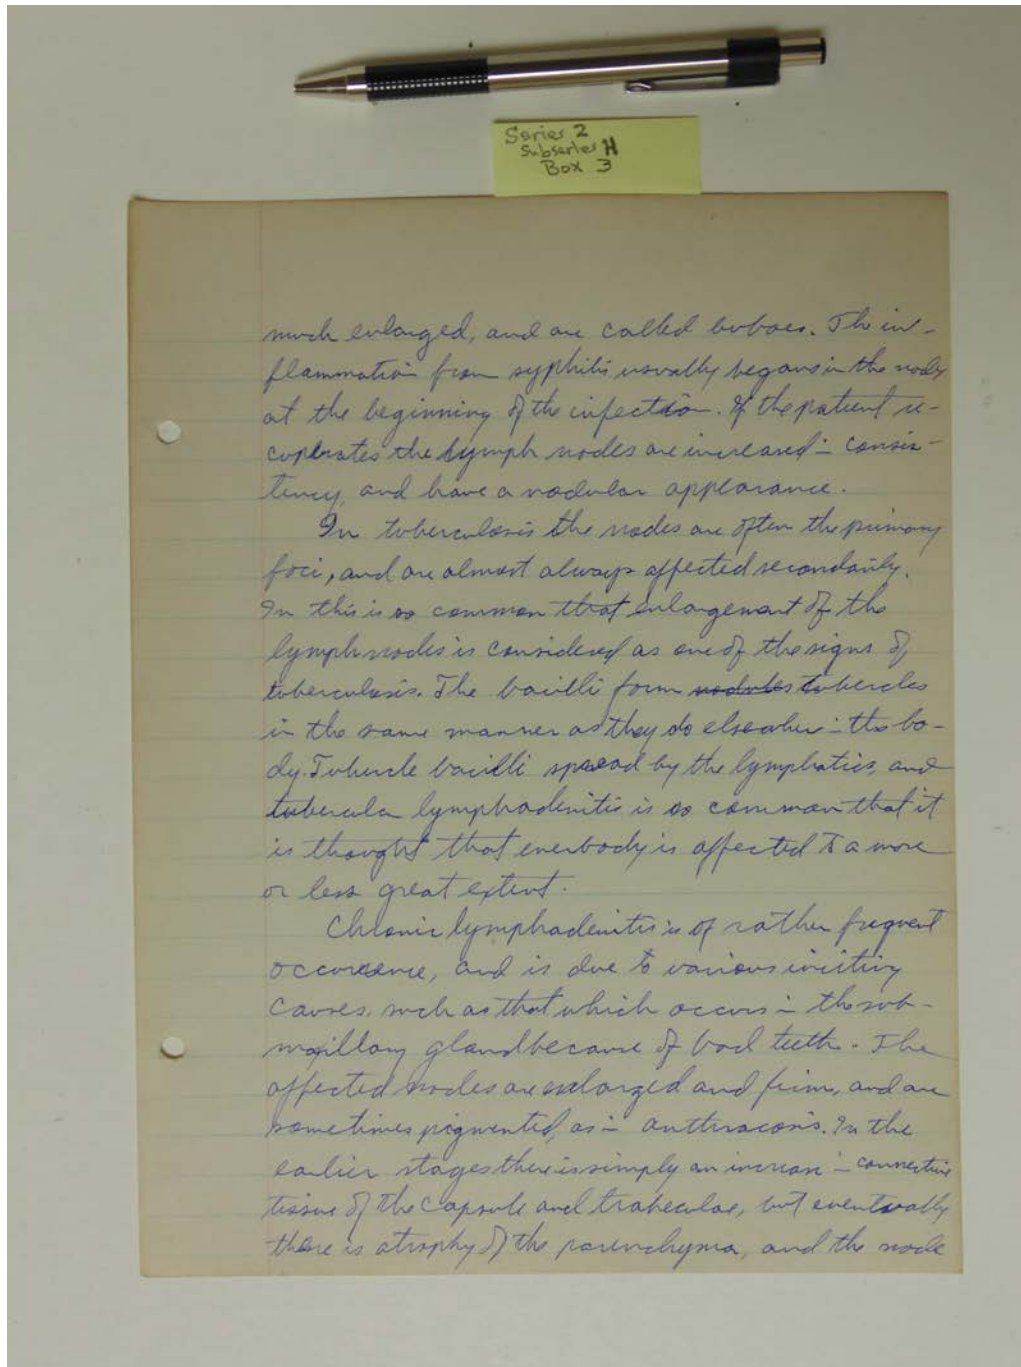 Series 2
Subseries H
Box 3
much enlarged, and are called buboes. The in-
flammation from syphilis usually begans in the nodes
at the beginning of the infection. If the patient re-
cuperates the lymph nodes are increased in consis-
tency, and have a nodular appearance.
In tuberculosis the nodes are often the primary
foci, and are almost always affected secondarily.
In this is so common that enlargement of the
lymph nodes is considered as one of the signs of
tuberculosis. The bacilli form nodules tubercles
in the same manner as they do elsewhere in the bo-
dy. Tubercle bacilli spread by the lymphatics, and
tubercular lymphadenitis is so common that it
is thought that everbody is affected to a more
or less great extent.
Chronic lymphadenitis is of rather frequent
occurence, and is due to various inciting
causes, such as that which occurs in the sub-
maxillary gland because of bad teeth. The
affected nodes are enlarged and firm, and are
sometimes pigmented, as in anthracosis. In the
earlier stages there is simply an increase in connective
tissue of the capsule and trabeculae, but eventually
there is atrophy of the parenchyma, and the node